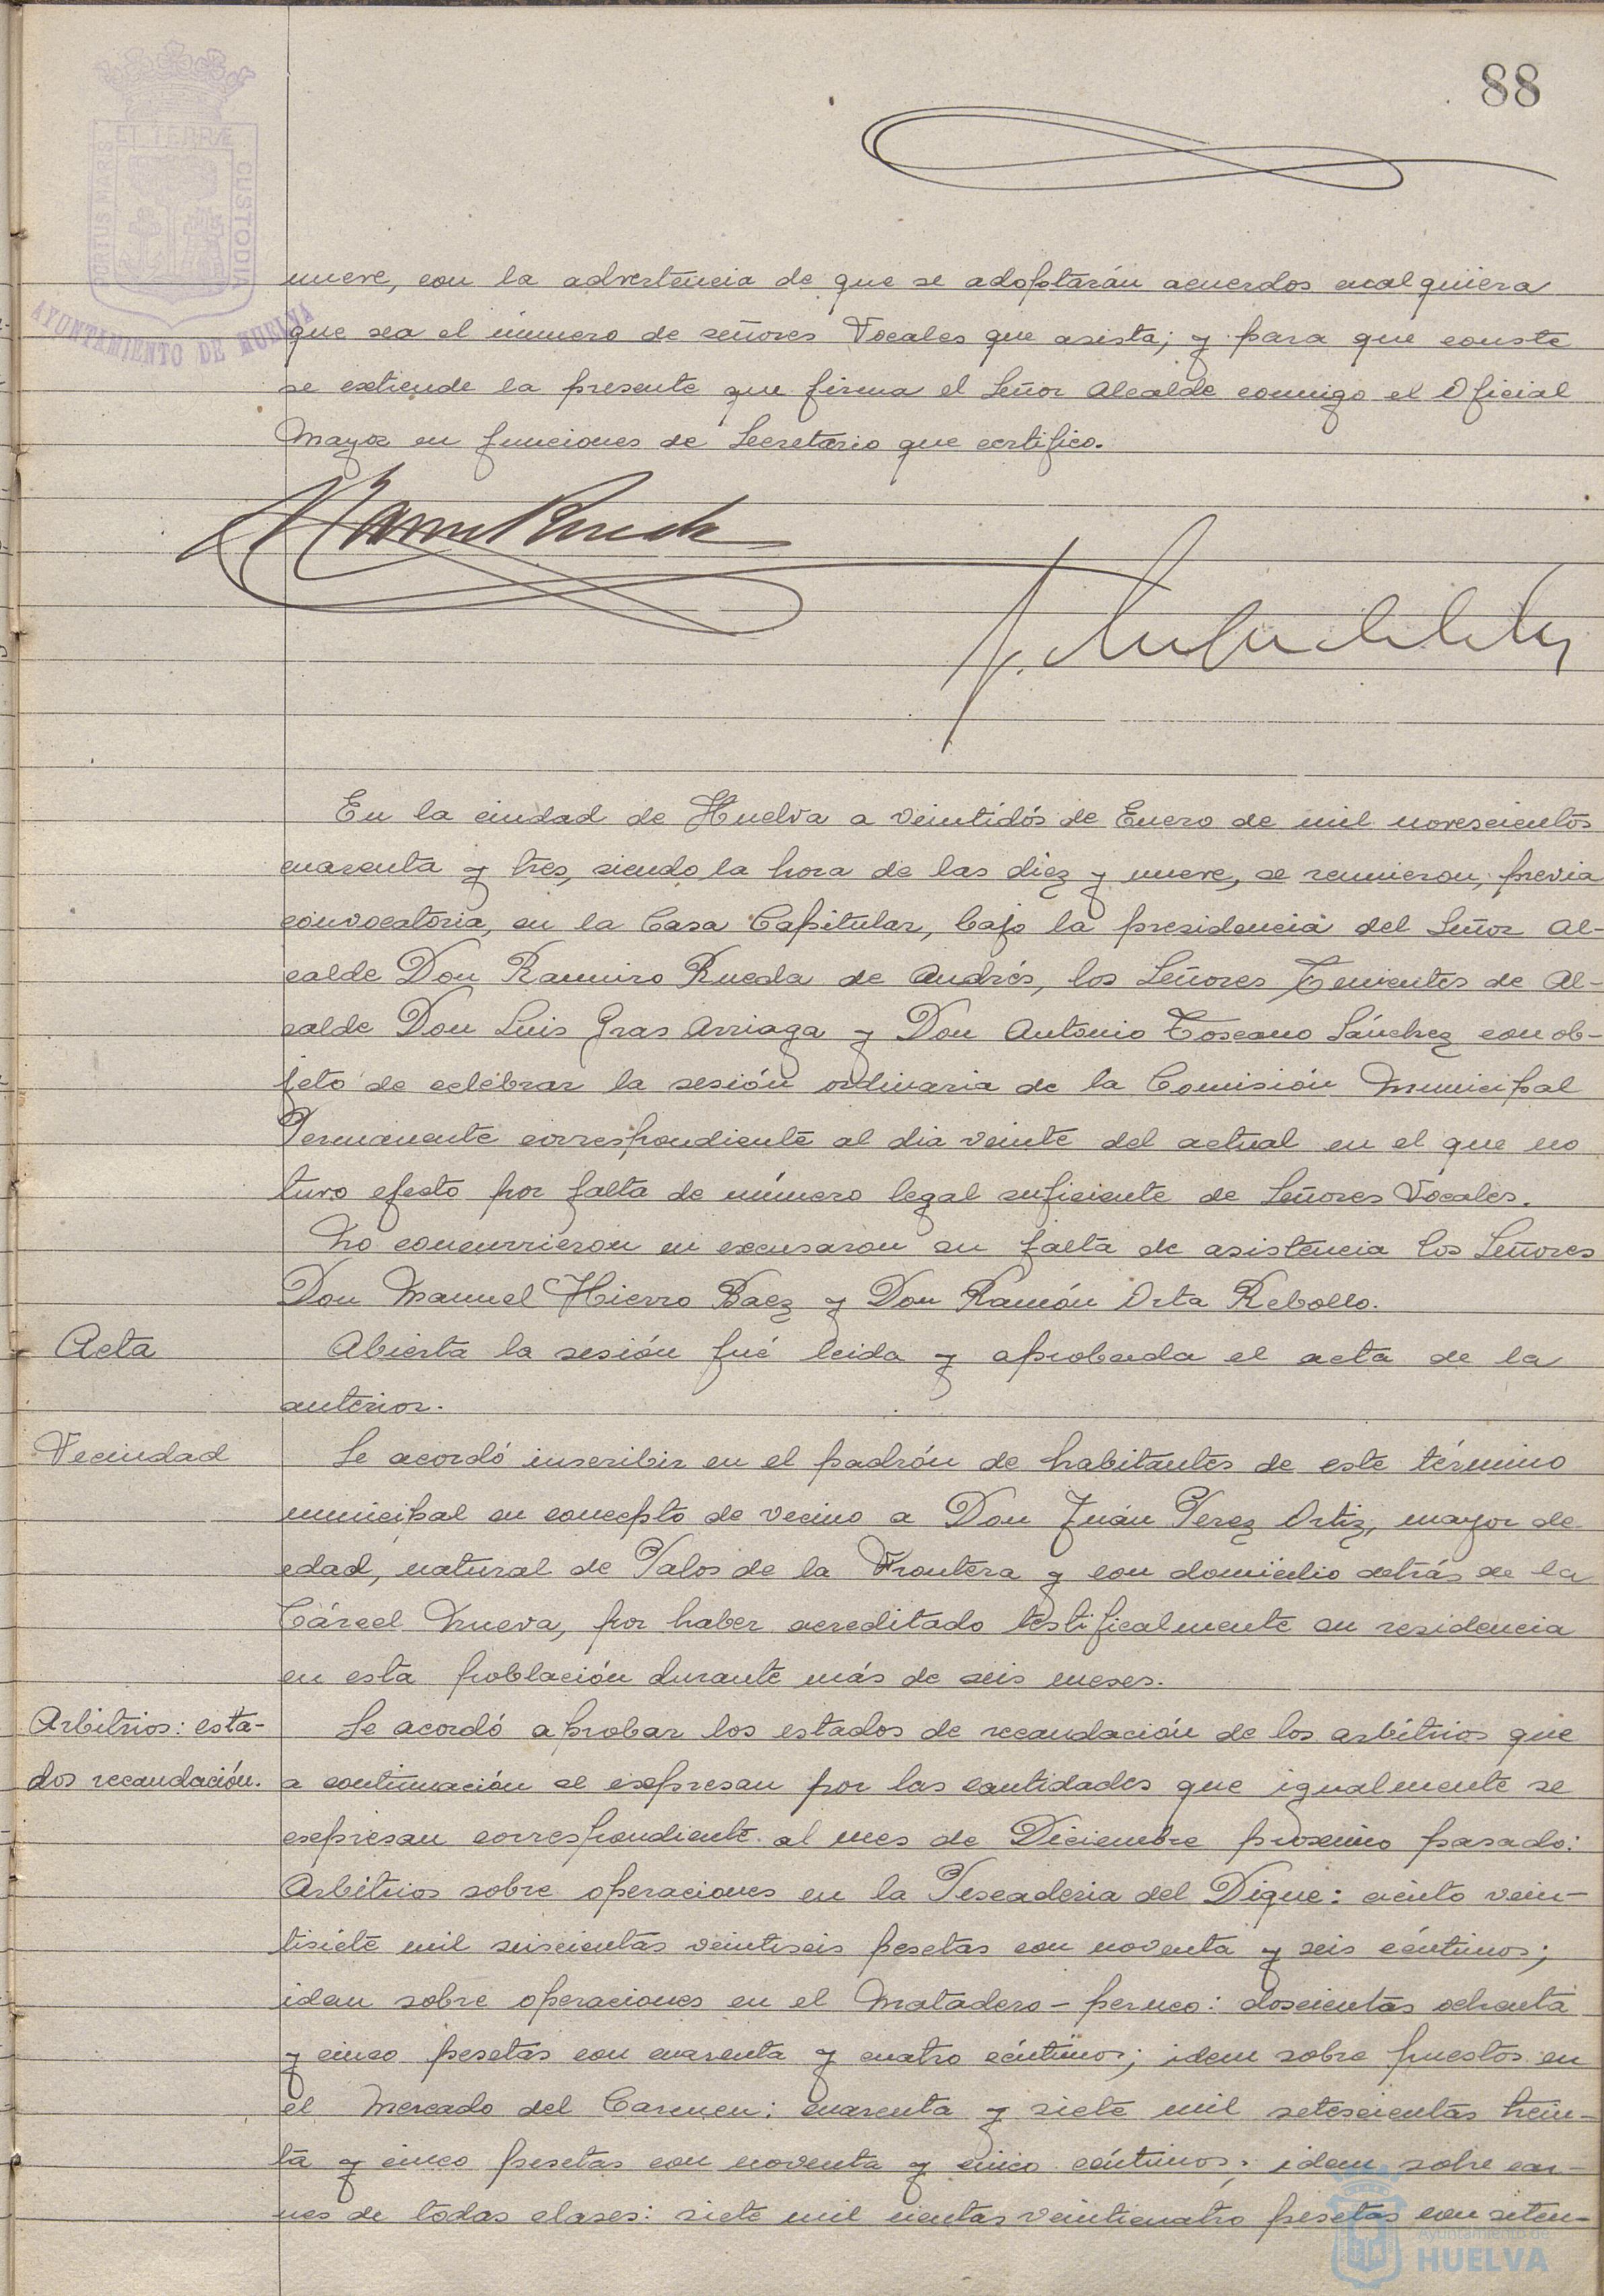 88
PORTUS MARIS
ET TERRE
CUSTODIA
AYUNTAMIENTO DE HUELVA
nueve, con la advertencia de que se adoptarán acuerdos cualquiera
que sea el número de señores Vocales que asista; y para que conste
se extiende la presente que firma el Señor Alcalde conmigo el Oficial
Mayor en funciones de Secretario que certifico.
En la ciudad de Huelva a veintidós de Enero de mil novescientos
cuarenta y tres, siendo la hora de las diez y nueve, se reunieron, previa
convocatoria, en la Casa Capitular, bajo la presidencia del Señor Al-
calde Don Ramiro Rueda de Andrés, los Señores Tenientes de Al-
calde Don Luis Gras Arriaga y Don Antonio Toscano Sánchez con ob-
jeto de celebrar la sesión ordinaria de la Comisión Municipal
Permanente correspondiente al dia veinte del actual en el que no
tuvo efecto por falta de número legal suficiente de Señores Vocales.
No concurrieron ni excusaron su falta de asistencia los Señores
Don Manuel Hierro Baez y Don Ramón Orta Rebollo.
Acta
Abierta la sesión fué leida y aprobada el acta de la
anterior.
Vecindad
Se acordó inscribir en el padrón de habitantes de este término
municipal en concepto de vecino a Don Juán Perez Ortiz, mayor de
edad, natural de Palos de la Frontera y con domicilio detrás de la
Cárcel Nueva, por haber acreditado testificalmente su residencia
en esta población durante más de seis meses.
Arbitrios: esta-
dos recaudación.
Se acordó aprobar los estados de recaudación de los arbitrios que
a continuación se expresan por las cantidades que igualmente se
expresan correspondiente al mes de Diciembre proximo pasado:
Arbitrios sobre operaciones en la Pescaderia del Dique: ciento vein-
tisiete mil seiscientas veintiseis pesetas con noventa y seis céntimos;
idem sobre operaciones en el Matadero-perneo: doscientas ochenta
y cinco pesetas con cuarenta y cuatro céntimos; idem sobre puestos en
el Mercado del Carmen: cuarenta y siete mil setescientas trein-
ta y cinco pesetas con noventa y cinco céntimos; idem sobre car-
nes de todas clases: siete mil cientas veinticuatro pesetas con seten-
Ayuntamiento de
HUELVA